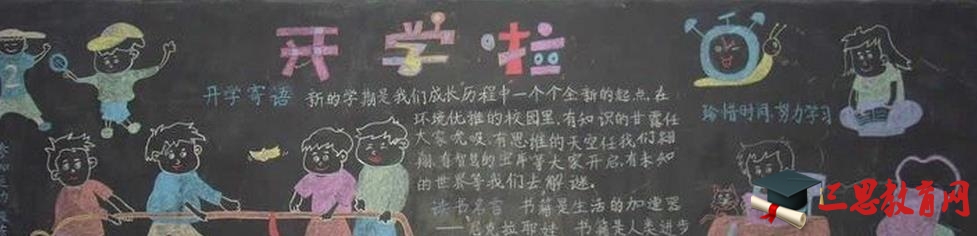 开学啦
开学寄语 新的学期是我们成长历程中一个个全新的起点.在
环境优雅的校园里.有知识的甘露任
大家吮吸.有思维的天空任我们翱
翔.有智慧的宝库等大家开启.有未知
的世界等我们去解谜。
读书名言 书籍是生活的加速器
——尼克拉耶娃 书籍是人类进步
珍惜时间.努力学习
2
三思教育网